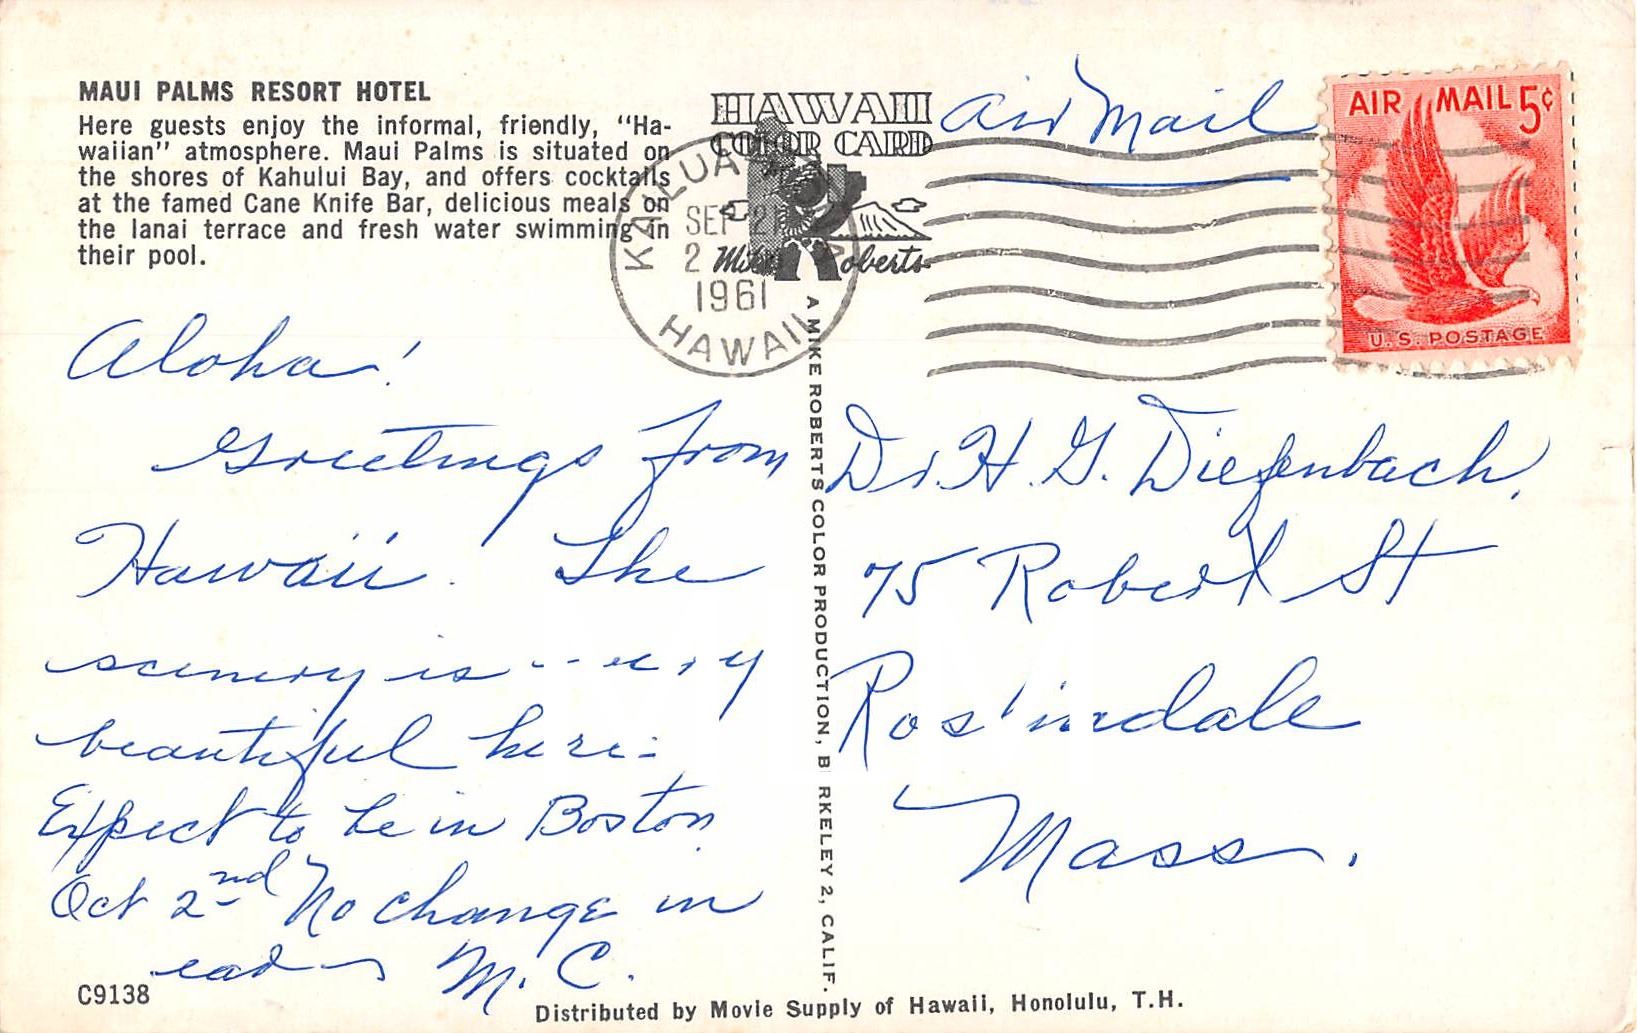 MAUI PALMS RESORT HOTEL
Here guests enjoy the informal, friendly, "Ha-
waiian" atmosphere. Maui Palms is situated on
the shores of Kahului Bay, and offers cocktails
at the famed Cane Knife Bar, delicious meals on
the lanai terrace and fresh water swimming in
their pool.
HAWAII
COLOR CARD
Mike Roberts
KAILUA
SEP 2
2
1961
HAWAII
Air Mail
AIR MAIL 5¢
U.S. POSTAGE
Aloha!
Greetings from
Hawaii. The
scenery is
beautiful here.
Expect to be in Boston
Oct 2nd No change in
M. C.
A MIKE ROBERTS COLOR PRODUCTION, B RKELEY 2, CALIF.
Dr. H. G. Diefenbach,
75 Robert St
Roslindale
Mass.
C9138
Distributed by Movie Supply of Hawaii, Honolulu, T.H.